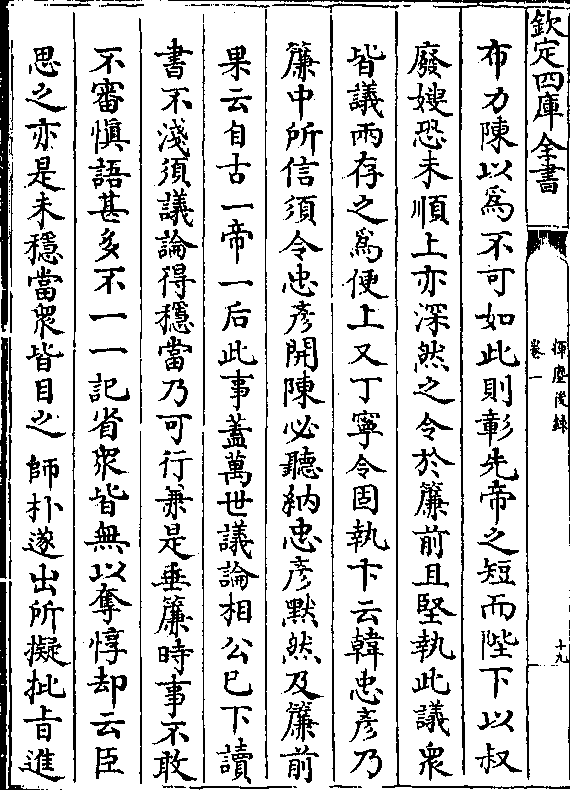 欽定四庫全書
揮麈後錄
卷一
十九
布力陳以為不可如此則彰先帝之短而陛下以叔
廢嫂恐未順上亦深然之令於簾前且堅執此議衆
皆議兩存之為便上又丁寧令固執卞云韓忠彦乃
簾中所信須令忠彦開陳必聽納忠彦默然及簾前
果云自古一帝一后此事蓋萬世議論相公已下讀
書不淺須議論得穩當乃可行兼是垂簾時事不敢
不審慎語甚多不一一記省衆皆無以奪惇却云臣
思之亦是未穩當衆皆目之 師朴遂出所擬批旨進